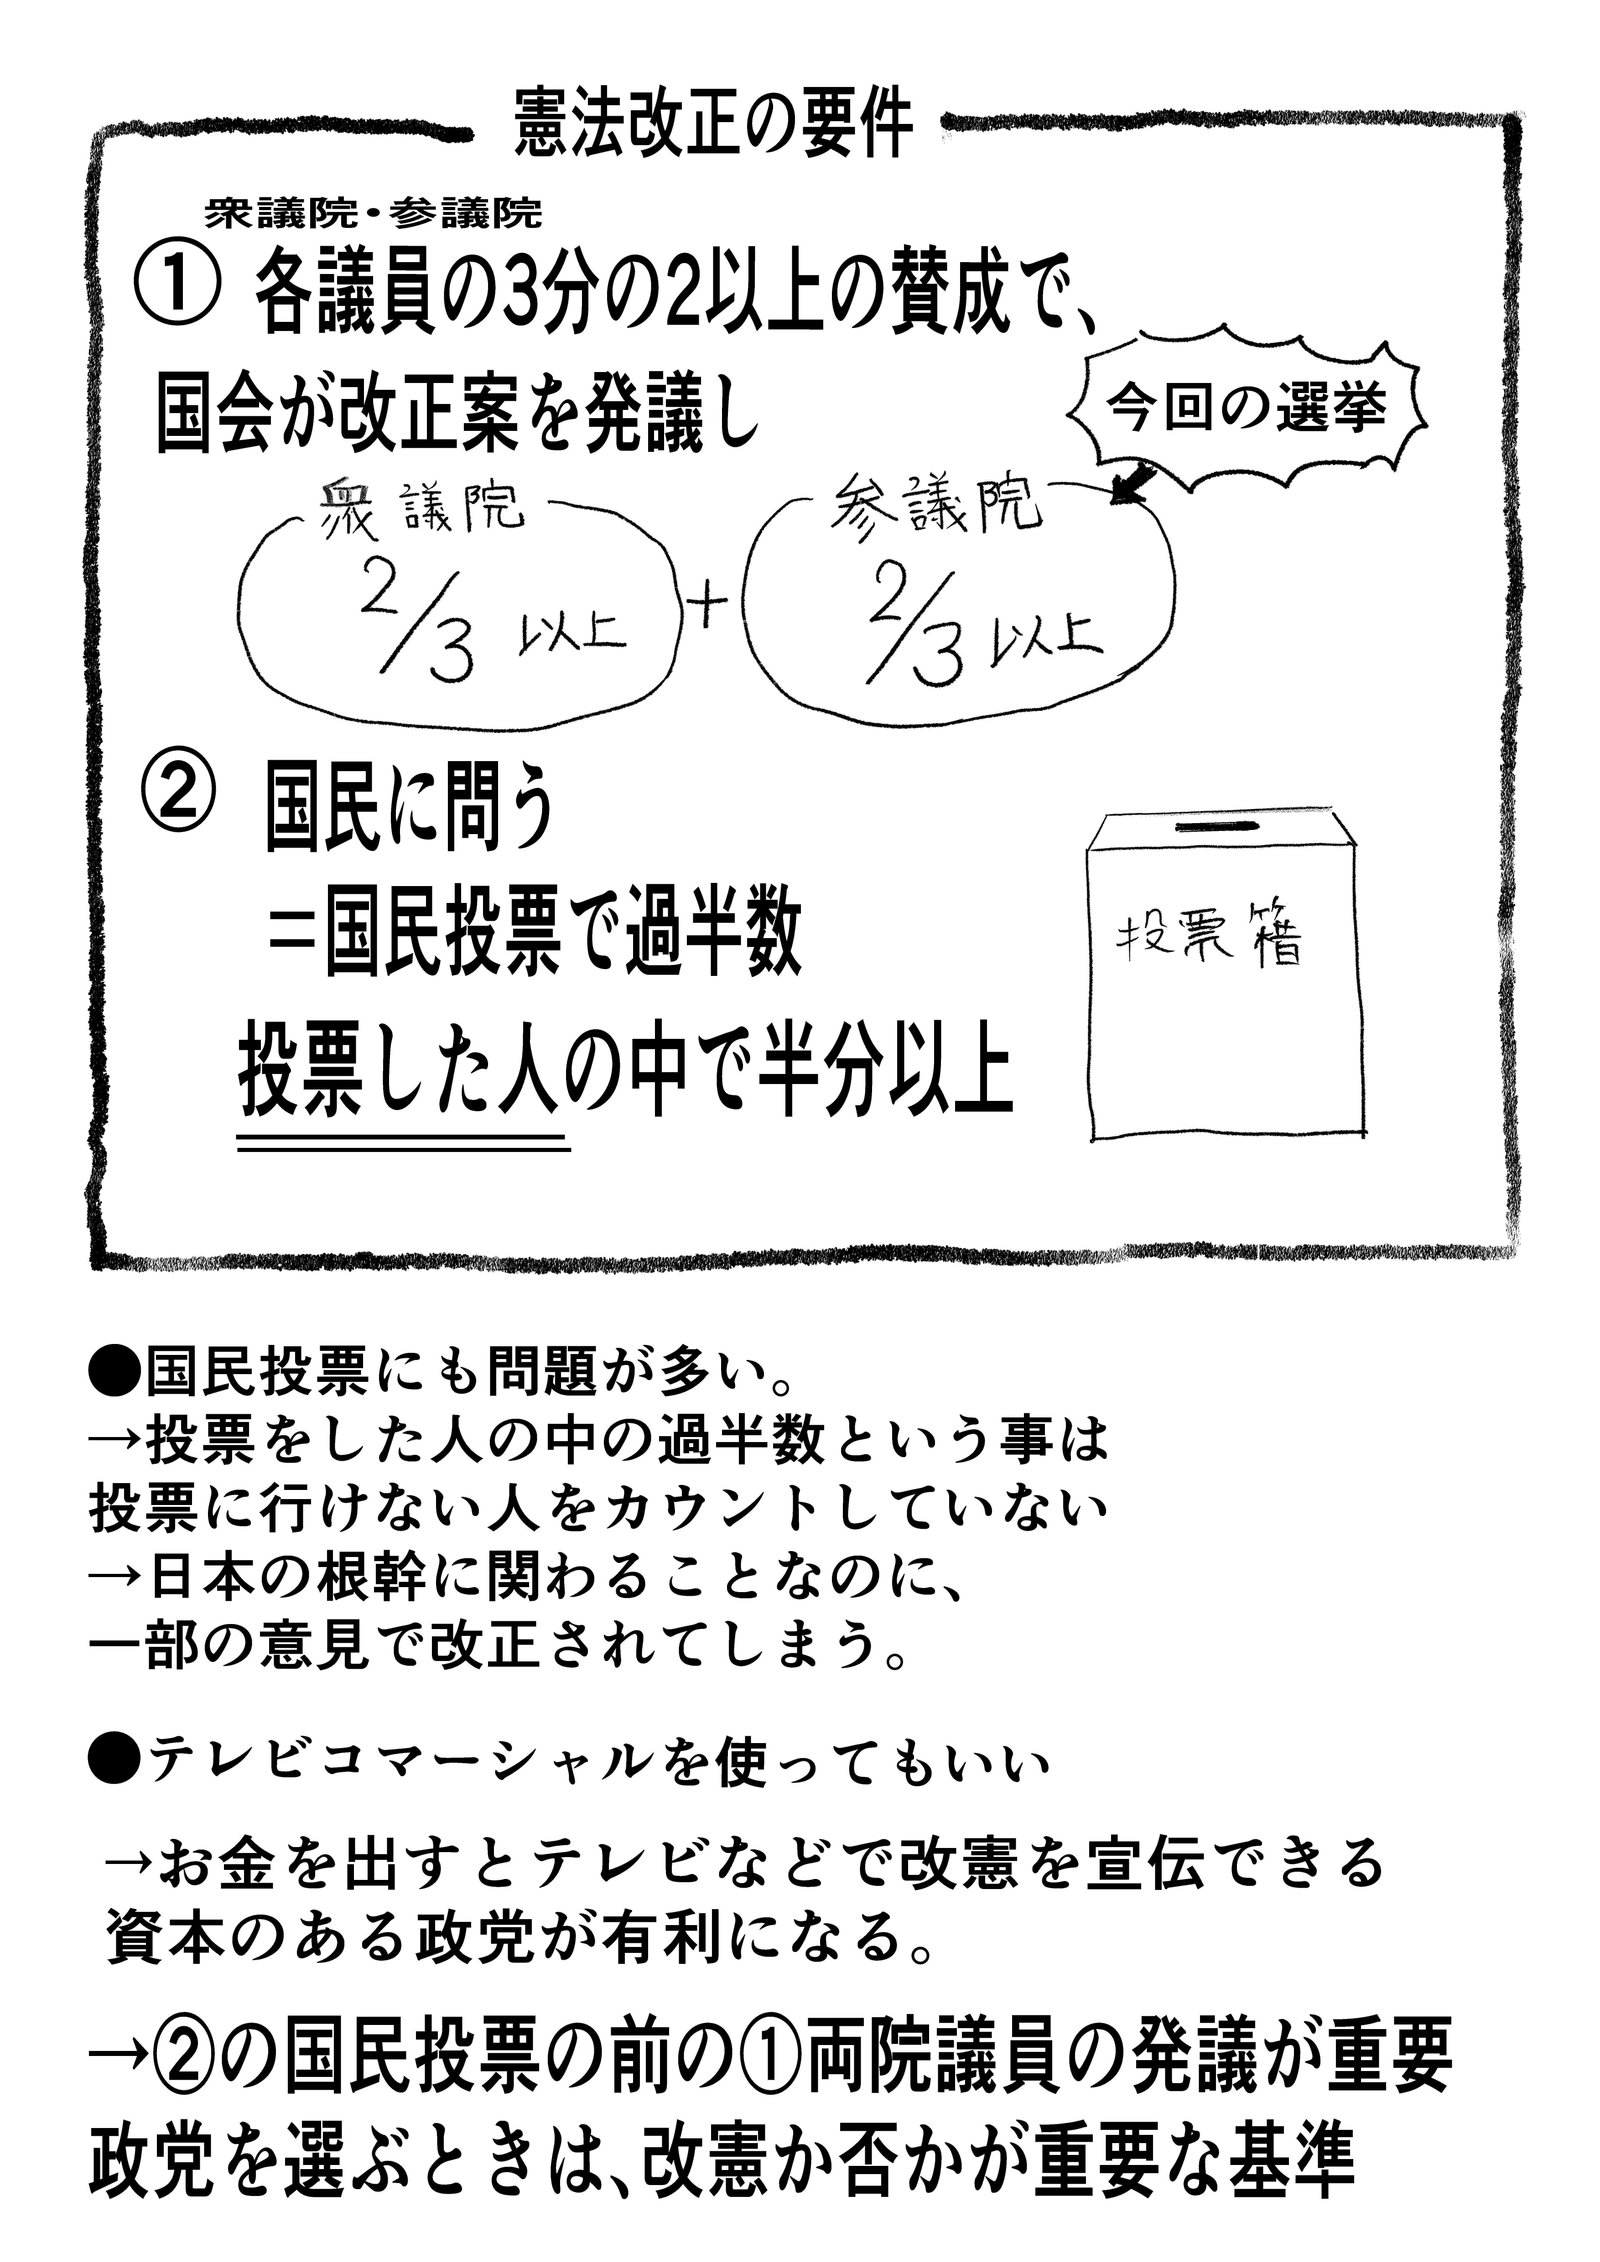 憲法改正の要件
衆議院・参議院
① 各議員の3分の2以上の賛成で、
国会が改正案を発議し
今回の選挙
衆議院
2/3 以上
+
参議院
2/3 以上
② 国民に問う
=国民投票で過半数
投票した人の中で半分以上
投票箱
●国民投票にも問題が多い。
→投票をした人の中の過半数という事は
投票に行けない人をカウントしていない
→日本の根幹に関わることなのに、
一部の意見で改正されてしまう。
●テレビコマーシャルを使ってもいい
→お金を出すとテレビなどで改憲を宣伝できる
資本のある政党が有利になる。
→②の国民投票の前の①両院議員の発議が重要
政党を選ぶときは、改憲か否かが重要な基準